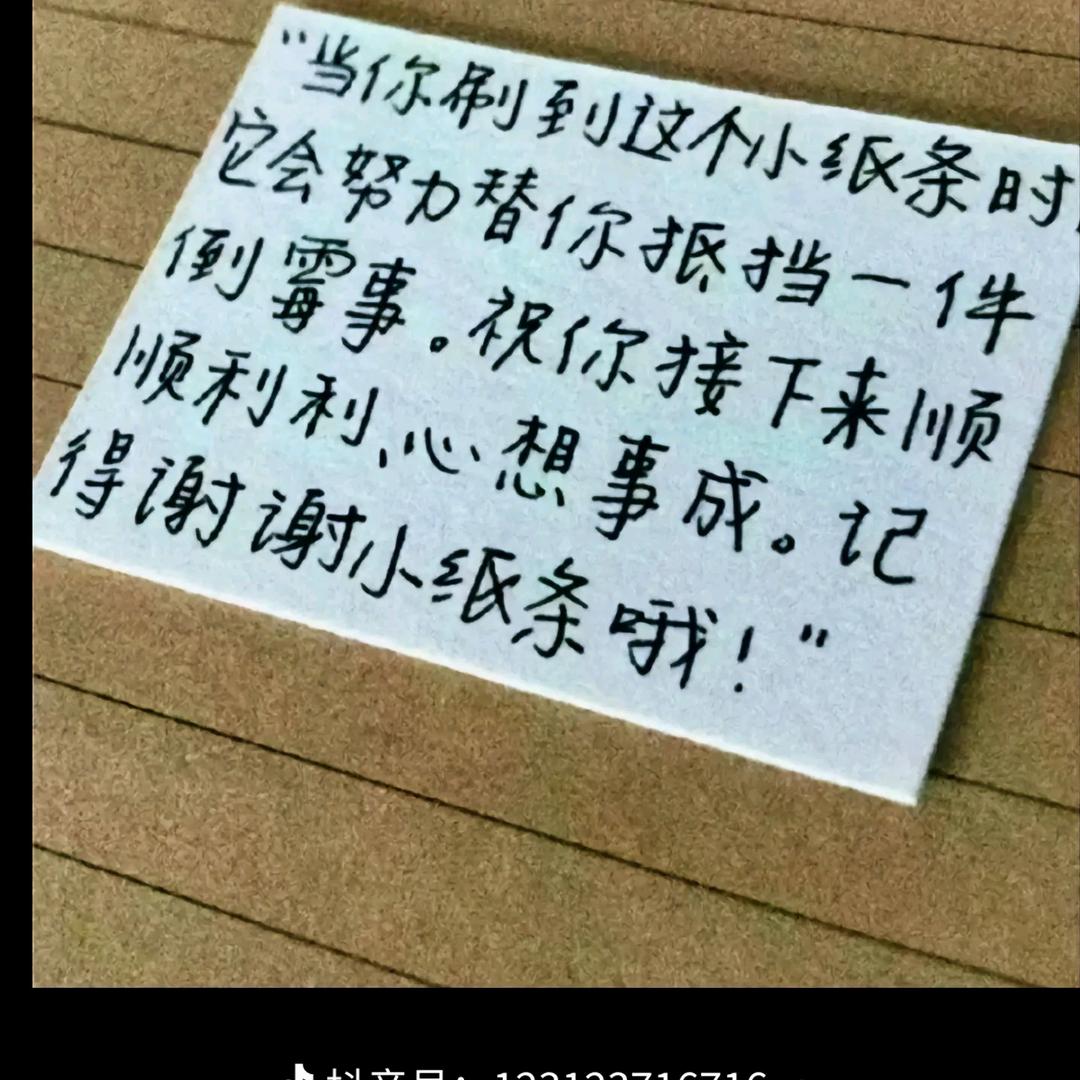 “当你刷到这个小纸条时
它会努力替你抵挡一件
倒霉事。祝你接下来顺
顺利利、心想事成。记
得谢谢小纸条哦！”
抖音号：